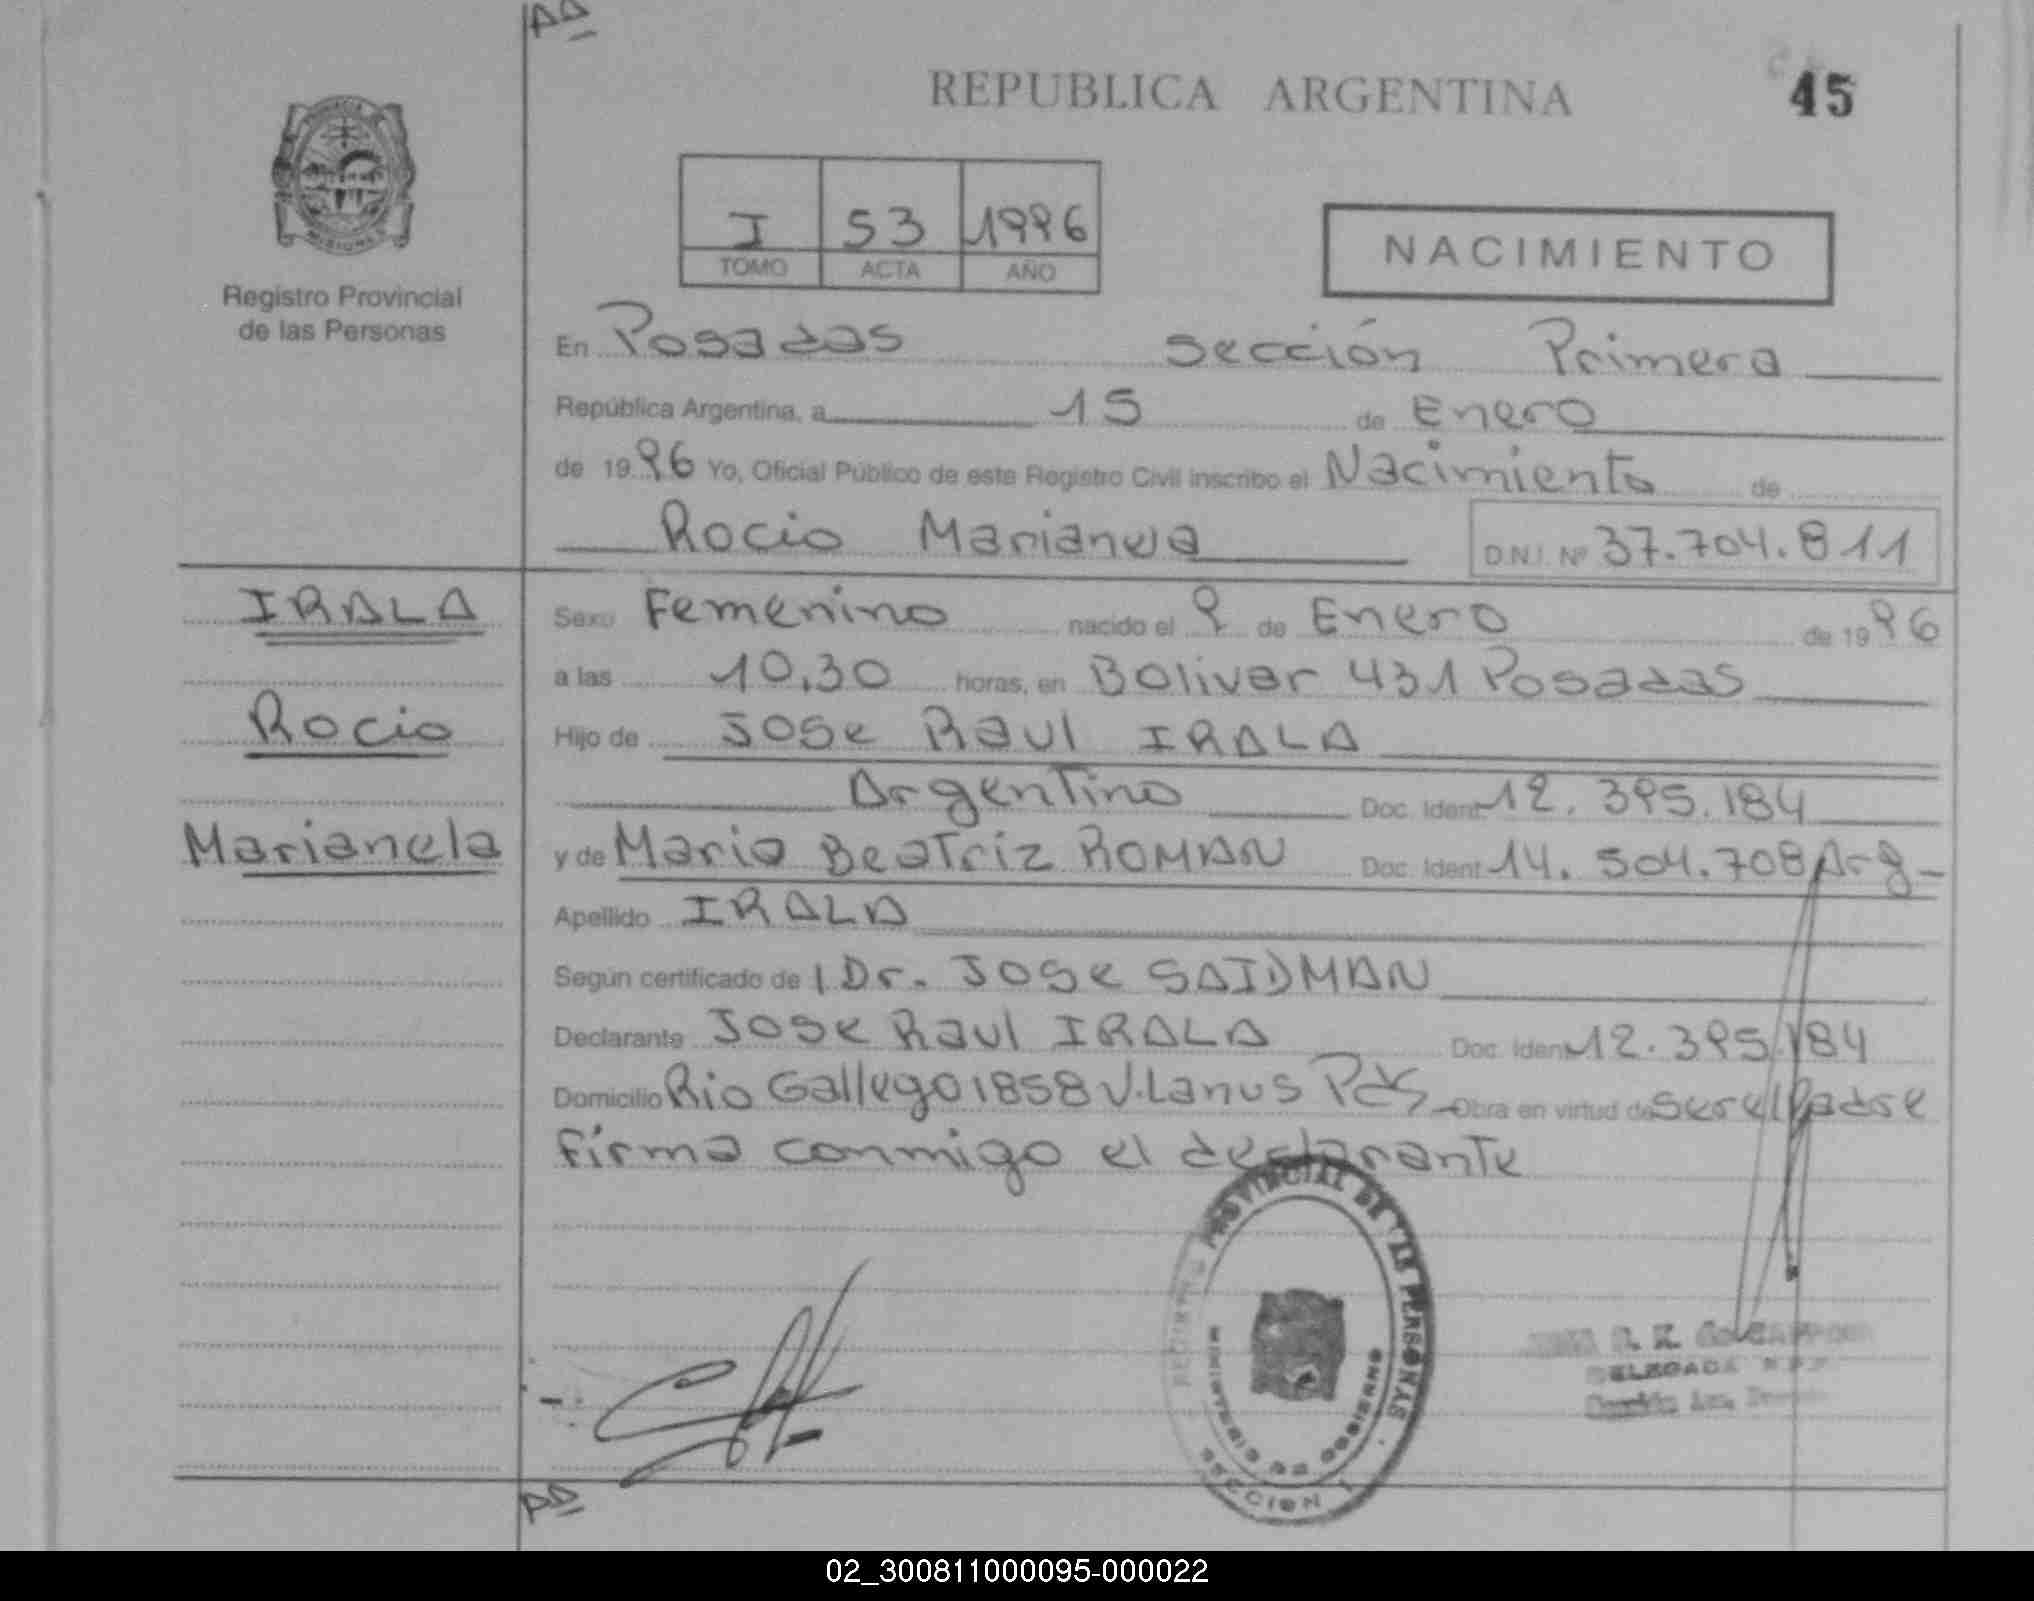 REPUBLICA ARGENTINA
45
PROVINCIA
MISIONES
Registro Provincial
de las Personas
I 53 1996
TOMO ACTA AÑO
NACIMIENTO
En Posadas sección Primera
República Argentina, a 15 de Enero
de 1996 Yo, Oficial Público de este Registro Civil inscribo el Nacimiento de
Rocio Marianela
D.N.I. Nº 37.704.811
IRALA
Rocio
Marianela
Sexo Femenino nacido el 9 de Enero de 1996
a las 10,30 horas, en Bolivar 431 Posadas
Hijo de Jose Raul IRALA
Argentino Doc. Ident. 12.395.184
y de Maria Beatriz ROMAN Doc. Ident. 14.504.708 Arg-
Apellido IRALA
Según certificado de l Dr. Jose SAIDMAN
Declarante Jose Raul IRALA Doc. Ident. 12.395.184
Domicilio Rio Gallego 1858 V. Lanus Pds Obra en virtud de ser el Padre
Firma conmigo el declarante
REGISTRO PROVINCIAL DE LAS PERSONAS
MINISTERIO DE GOBIERNO
SECCION 1
DELEGADA
02_300811000095-000022